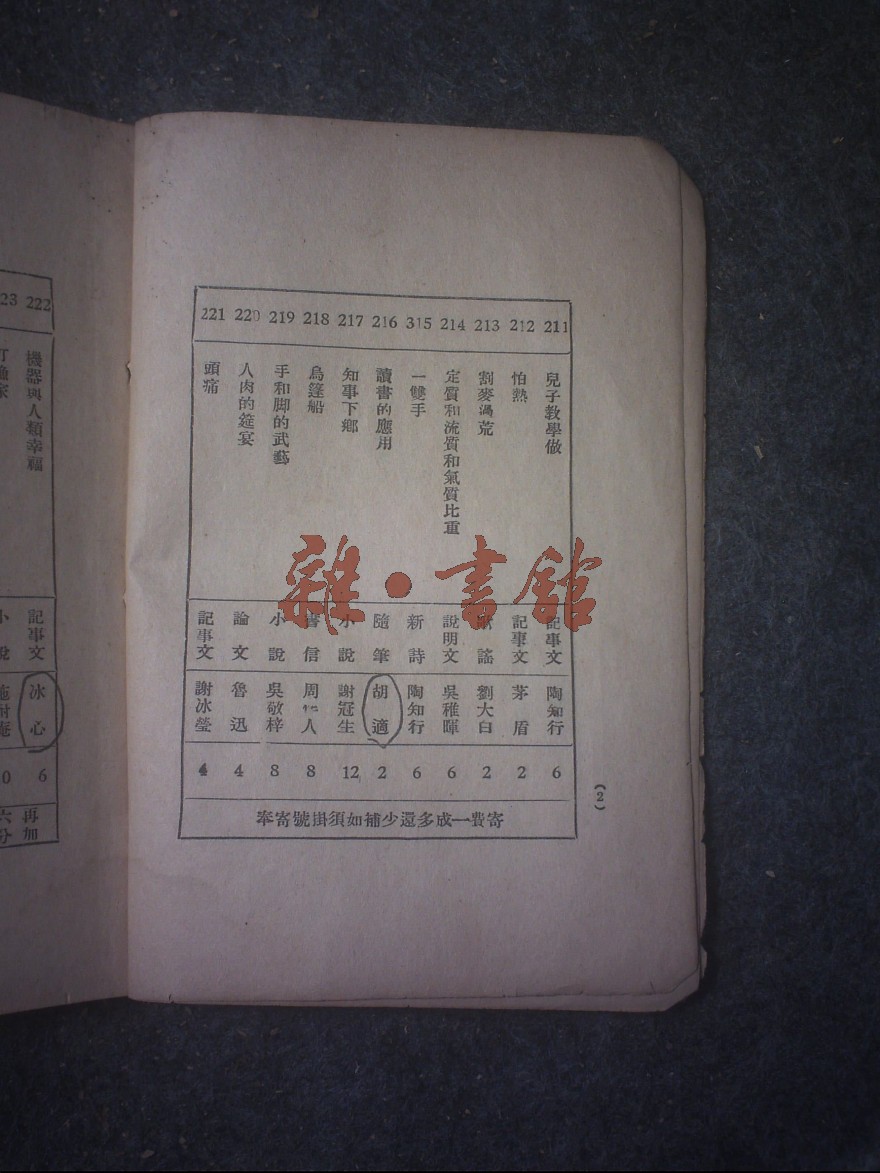 211 兒子教學做 記事文 陶知行 6
212 怕熱 記事文 茅盾 2
213 割麥渦荒 謠 劉大白 2
214 定質和流質和氣質比重 說明文 吳稚暉 6
315 一雙手 新詩 陶知行 6
216 讀書的應用 隨筆 胡適 2
217 知事下鄉 小說 謝冠生 12
218 烏篷船 書信 周作人 8
219 手和脚的武藝 小說 吳敬梓 8
220 人肉的筵宴 論文 魯迅 4
221 頭痛 記事文 謝冰瑩 4
寄費一成多還少補如須掛號寄奉
(2)
222 機器與人類幸福 記事文 冰心 6
23 小說 施耐庵 0
再加
六分
雜·書館